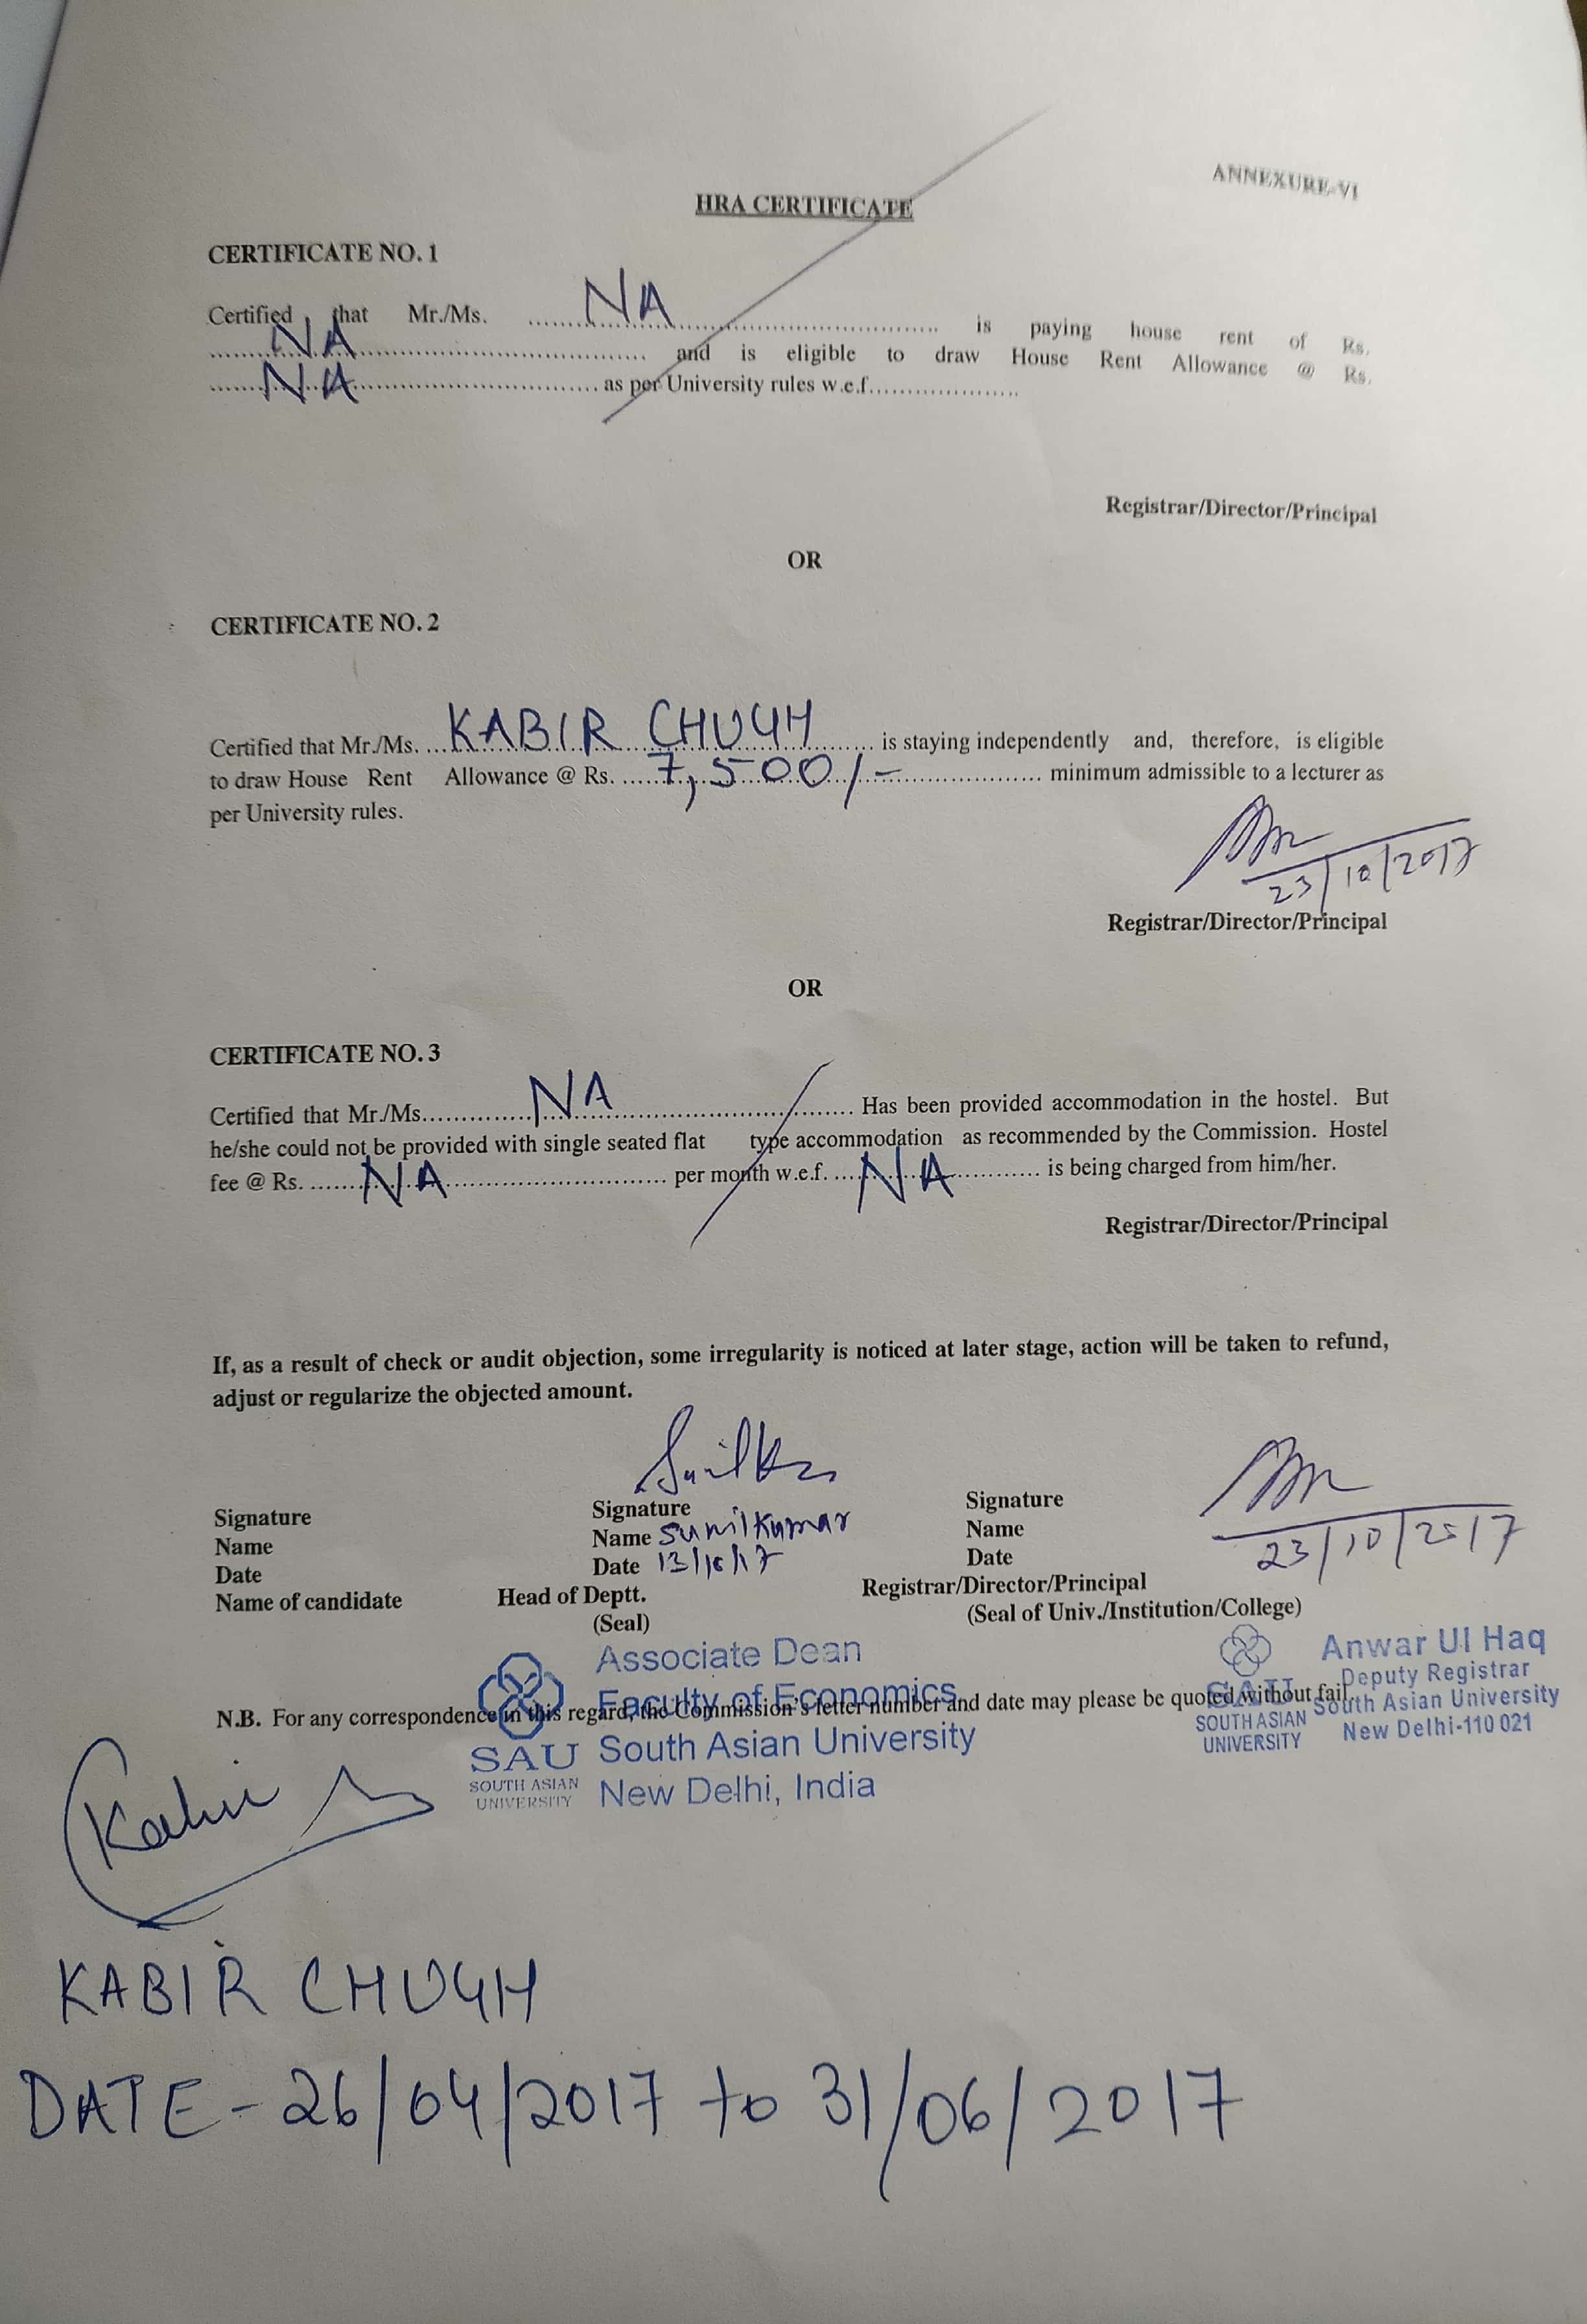 ANNEXURE-VI
HRA CERTIFICATE
CERTIFICATE NO. 1
Certified that Mr./Ms. ......NA...... is paying house rent of Rs.
......NA...... and is eligible to draw House Rent Allowance @ Rs.
......NA...... as per University rules w.e.f.....................
Registrar/Director/Principal
OR
CERTIFICATE NO. 2
Certified that Mr./Ms. ...KABIR CHUGH...... is staying independently and, therefore, is eligible
to draw House Rent Allowance @ Rs. .....7,500/-...... minimum admissible to a lecturer as
per University rules.
23/10/2017
Registrar/Director/Principal
OR
CERTIFICATE NO. 3
Certified that Mr./Ms......NA...... Has been provided accommodation in the hostel. But
he/she could not be provided with single seated flat type accommodation as recommended by the Commission. Hostel
fee @ Rs. ......NA...... per month w.e.f. .....NA...... is being charged from him/her.
Registrar/Director/Principal
If, as a result of check or audit objection, some irregularity is noticed at later stage, action will be taken to refund,
adjust or regularize the objected amount.
Signature Signature Signature
Name Name Sunil Kumar Name
Date Date 13/10/17 Date 23/10/2017
Name of candidate Head of Deptt. Registrar/Director/Principal
(Seal) (Seal of Univ./Institution/College)
Associate Dean
Faculty of Economics
SAU South Asian University
SOUTH ASIAN UNIVERSITY New Delhi, India
Anwar Ul Haq
Deputy Registrar
SAU South Asian University
SOUTH ASIAN UNIVERSITY New Delhi-110 021
N.B. For any correspondence in this regard, the Commission's letter number and date may please be quoted without fail.
Kabir
KABIR CHUGH
DATE - 26/04/2017 to 31/06/2017